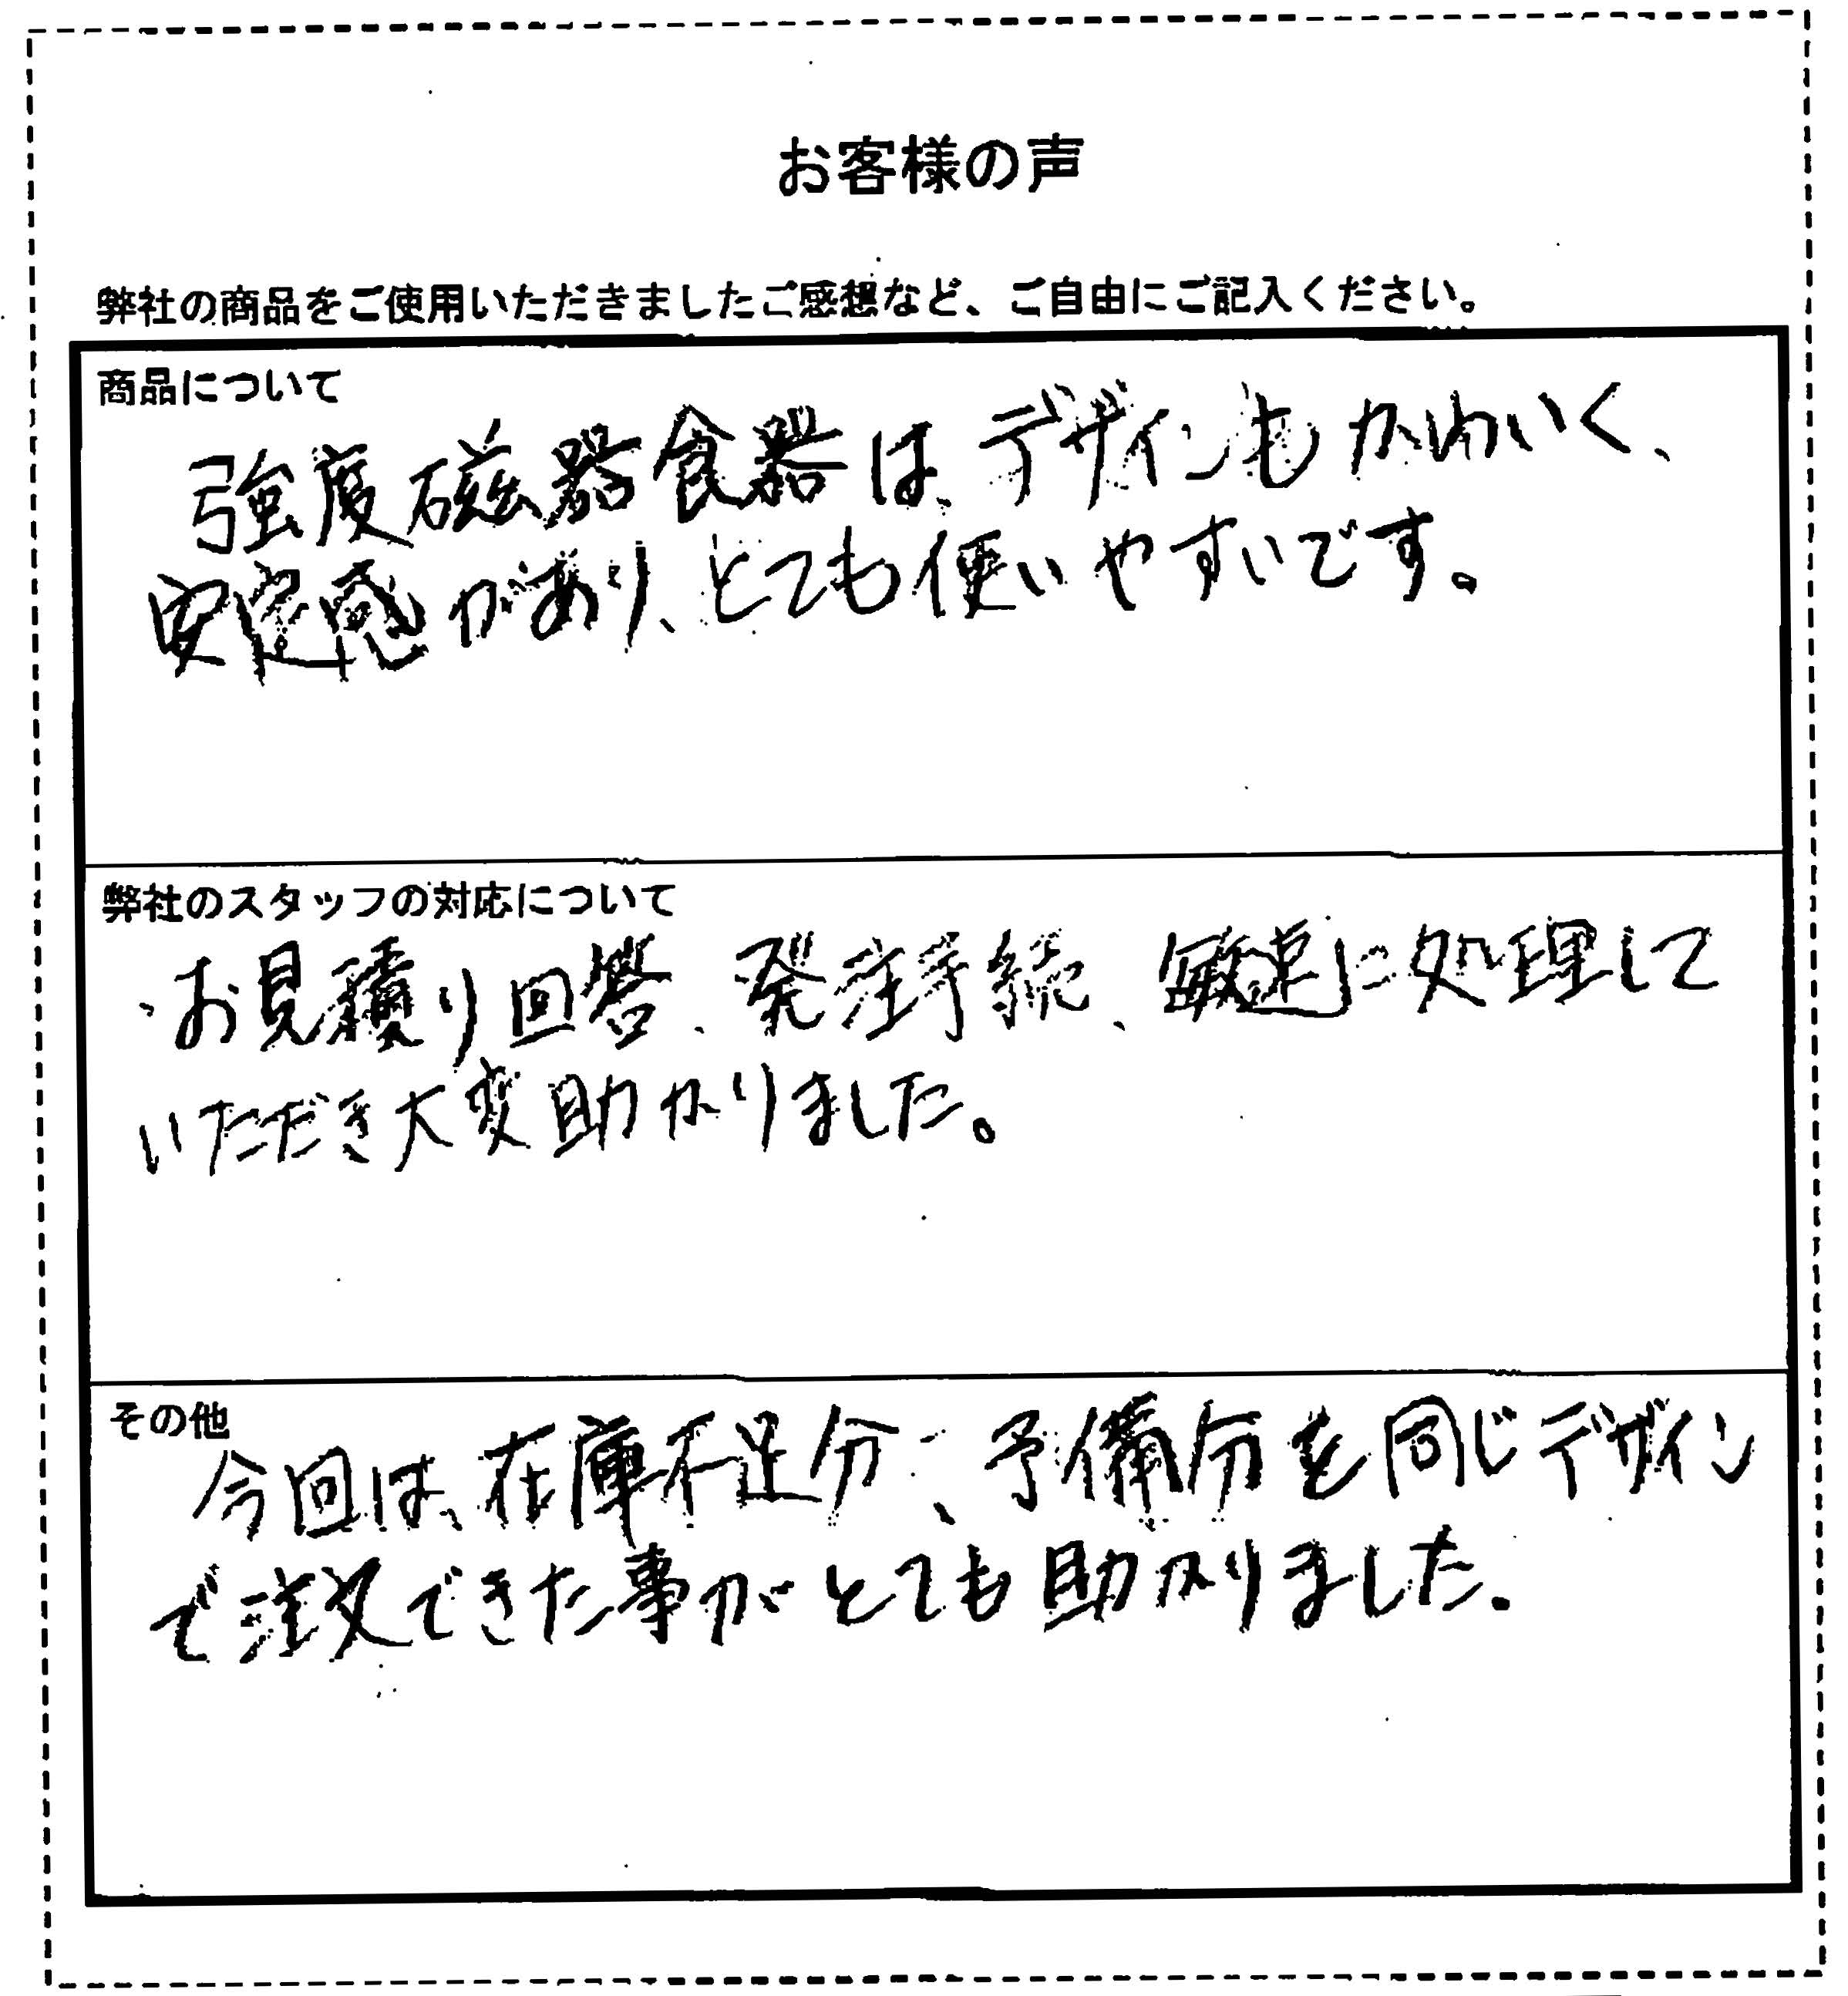 お客様の声
弊社の商品をご使用いただきましたご感想など、ご自由にご記入ください。
商品について
強度磁器食器は、デザインもかわいく、
安定感があり、とても使いやすいです。
弊社のスタッフの対応について
お見積り回答、発注手続、敏速に処理して
いただき大変助かりました。
その他
今回は、在庫不足分、予備分を同じデザイン
で注文できた事がとても助かりました。